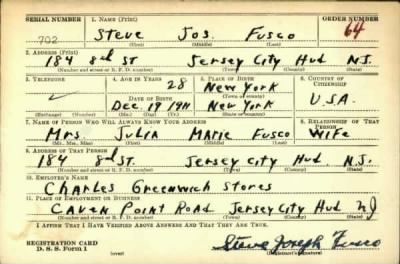 SERIAL NUMBER 1. NAME (Print) ORDER NUMBER
702 Steve Jos. Fusco 64
(First) (Middle) (Last)
2. ADDRESS (Print)
184 8rd ST Jersey City Hud N.J.
(Number and street or R. F. D. number) (Town) (County) (State)
3. TELEPHONE 4. AGE IN YEARS 5. PLACE OF BIRTH 6. COUNTRY OF CITIZENSHIP
28 New York
DATE OF BIRTH
Dec. 19 1911 New York U.S.A.
(Mo.) (Day) (Yr.)
7. NAME OF PERSON WHO WILL ALWAYS KNOW YOUR ADDRESS 8. RELATIONSHIP OF THAT PERSON
Mrs. Julia Marie Fusco Wife
(Mr., Mrs., Miss) (First) (Middle) (Last)
9. ADDRESS OF THAT PERSON
184 8rd ST. Jersey City Hud. N.J.
(Number and street or R. F. D. number) (Town) (County) (State)
10. EMPLOYER'S NAME
Charles Greenwich Stores
11. PLACE OF EMPLOYMENT OR BUSINESS
Caven Point Road Jersey City Hud NJ
(Number and street or R. F. D. number) (Town) (County) (State)
I AFFIRM THAT I HAVE VERIFIED ABOVE ANSWERS AND THAT THEY ARE TRUE.
REGISTRATION CARD
D. S. S. Form 1 (over) Steve Joseph Fusco
(Registrant's signature)